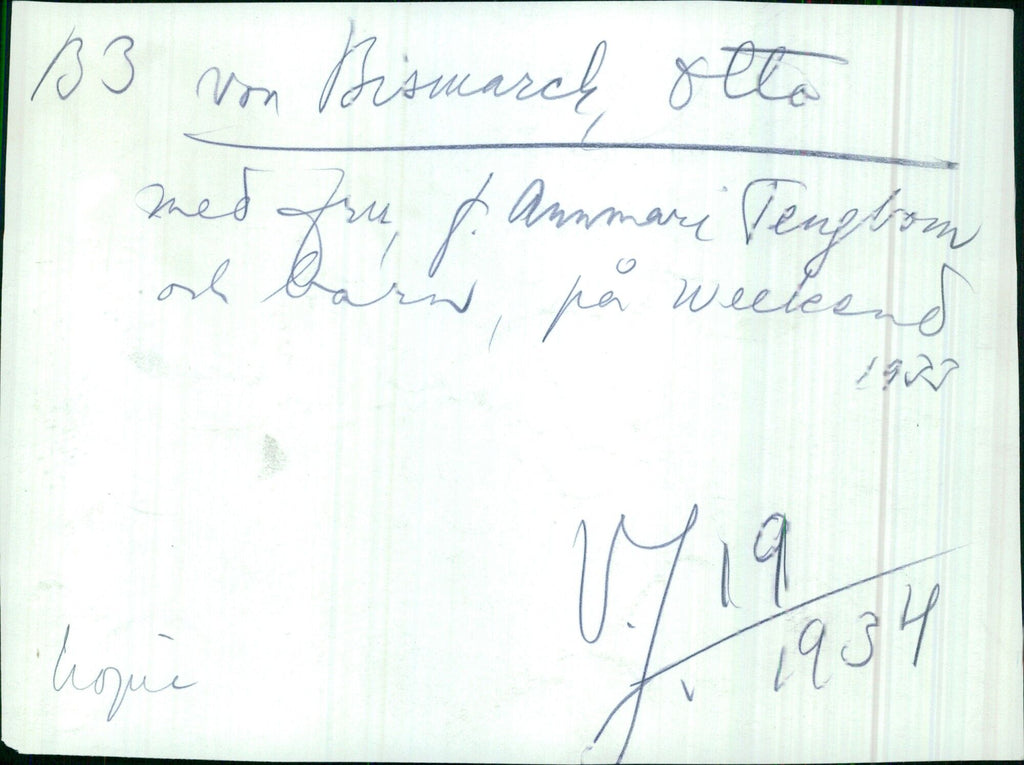 B3 von Bismarck, Otto
med fru, f. Annmari Tengbom
och barn, på weekend
1933
V.J. 19/1934
kopia